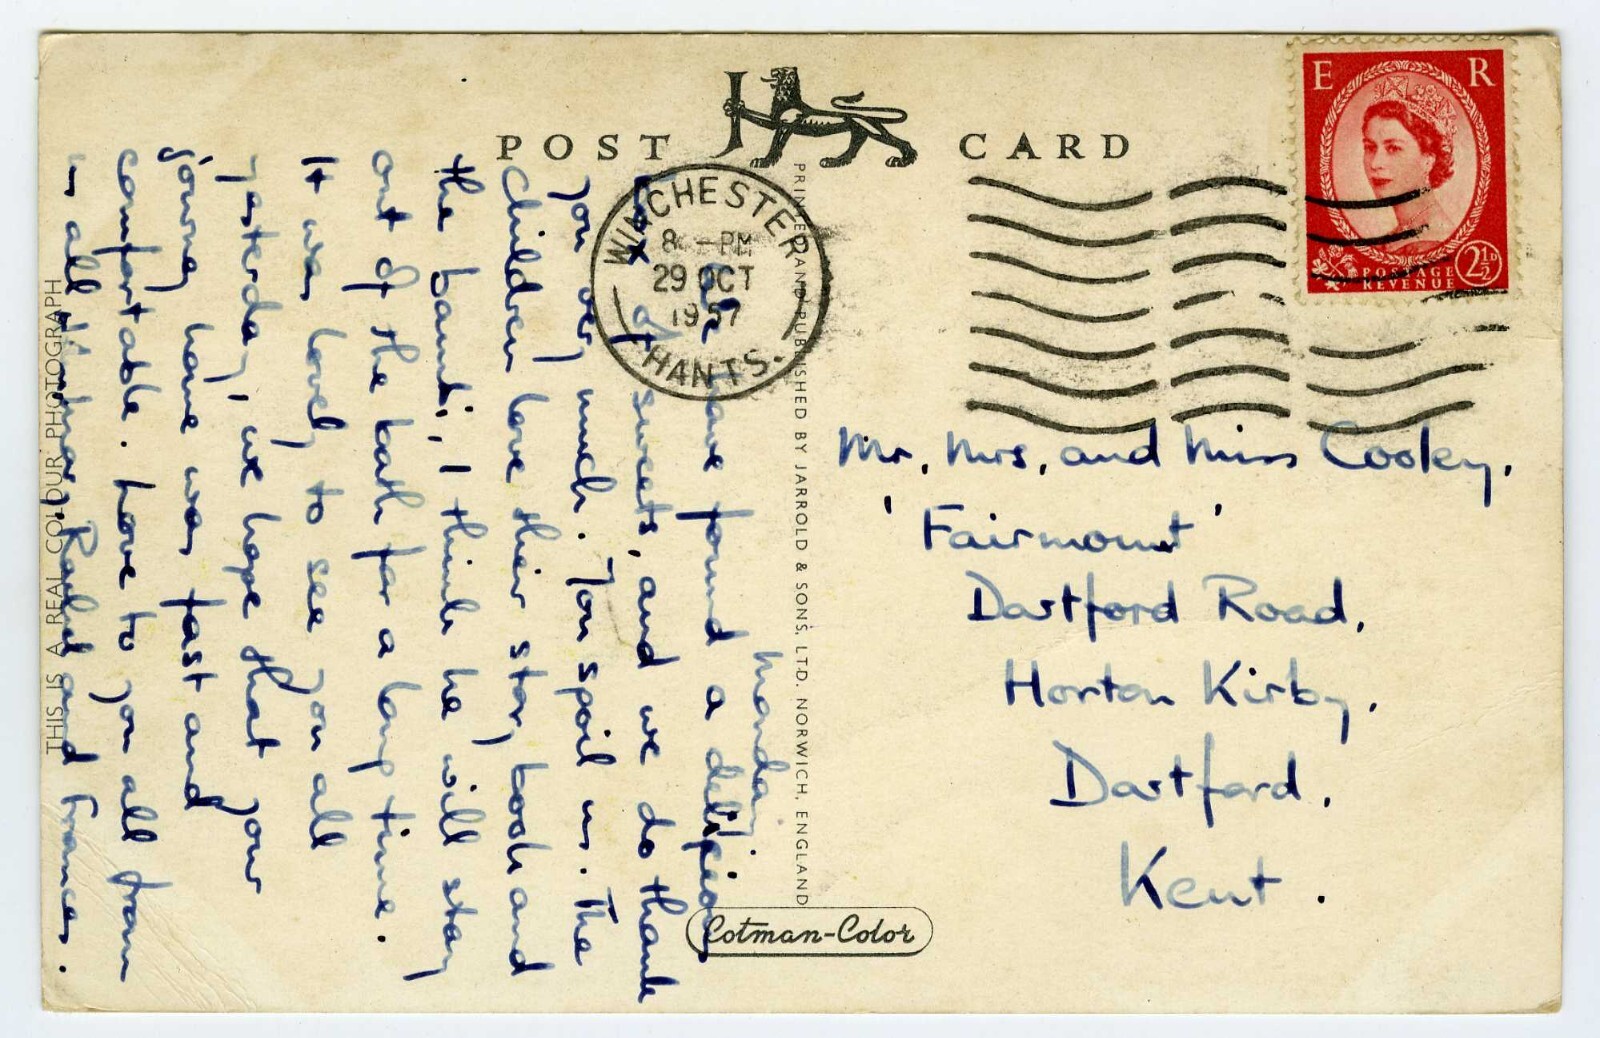 POST CARD
E R
POSTAGE
REVENUE
2½D
WINCHESTER
8 - PM
29 OCT
1957
HANTS.
PRINTED AND PUBLISHED BY JARROLD & SONS, LTD. NORWICH, ENGLAND
THIS IS A REAL COLOUR PHOTOGRAPH
Cotman-Color
Monday
We have found a delicious
box of sweets, and we do thank
you very much. You spoil us. The
Children love their story book and
the , I think he will stay
out of the bath for a long time.
It was lovely to see you all
yesterday, we hope that your
journey home was fast and
comfortable. Love to you all from
us all , Rachel and Frances.
Mr, Mrs, and Miss Cooley,
'Fairmount'
Dartford Road,
Horton Kirby,
Dartford,
Kent.